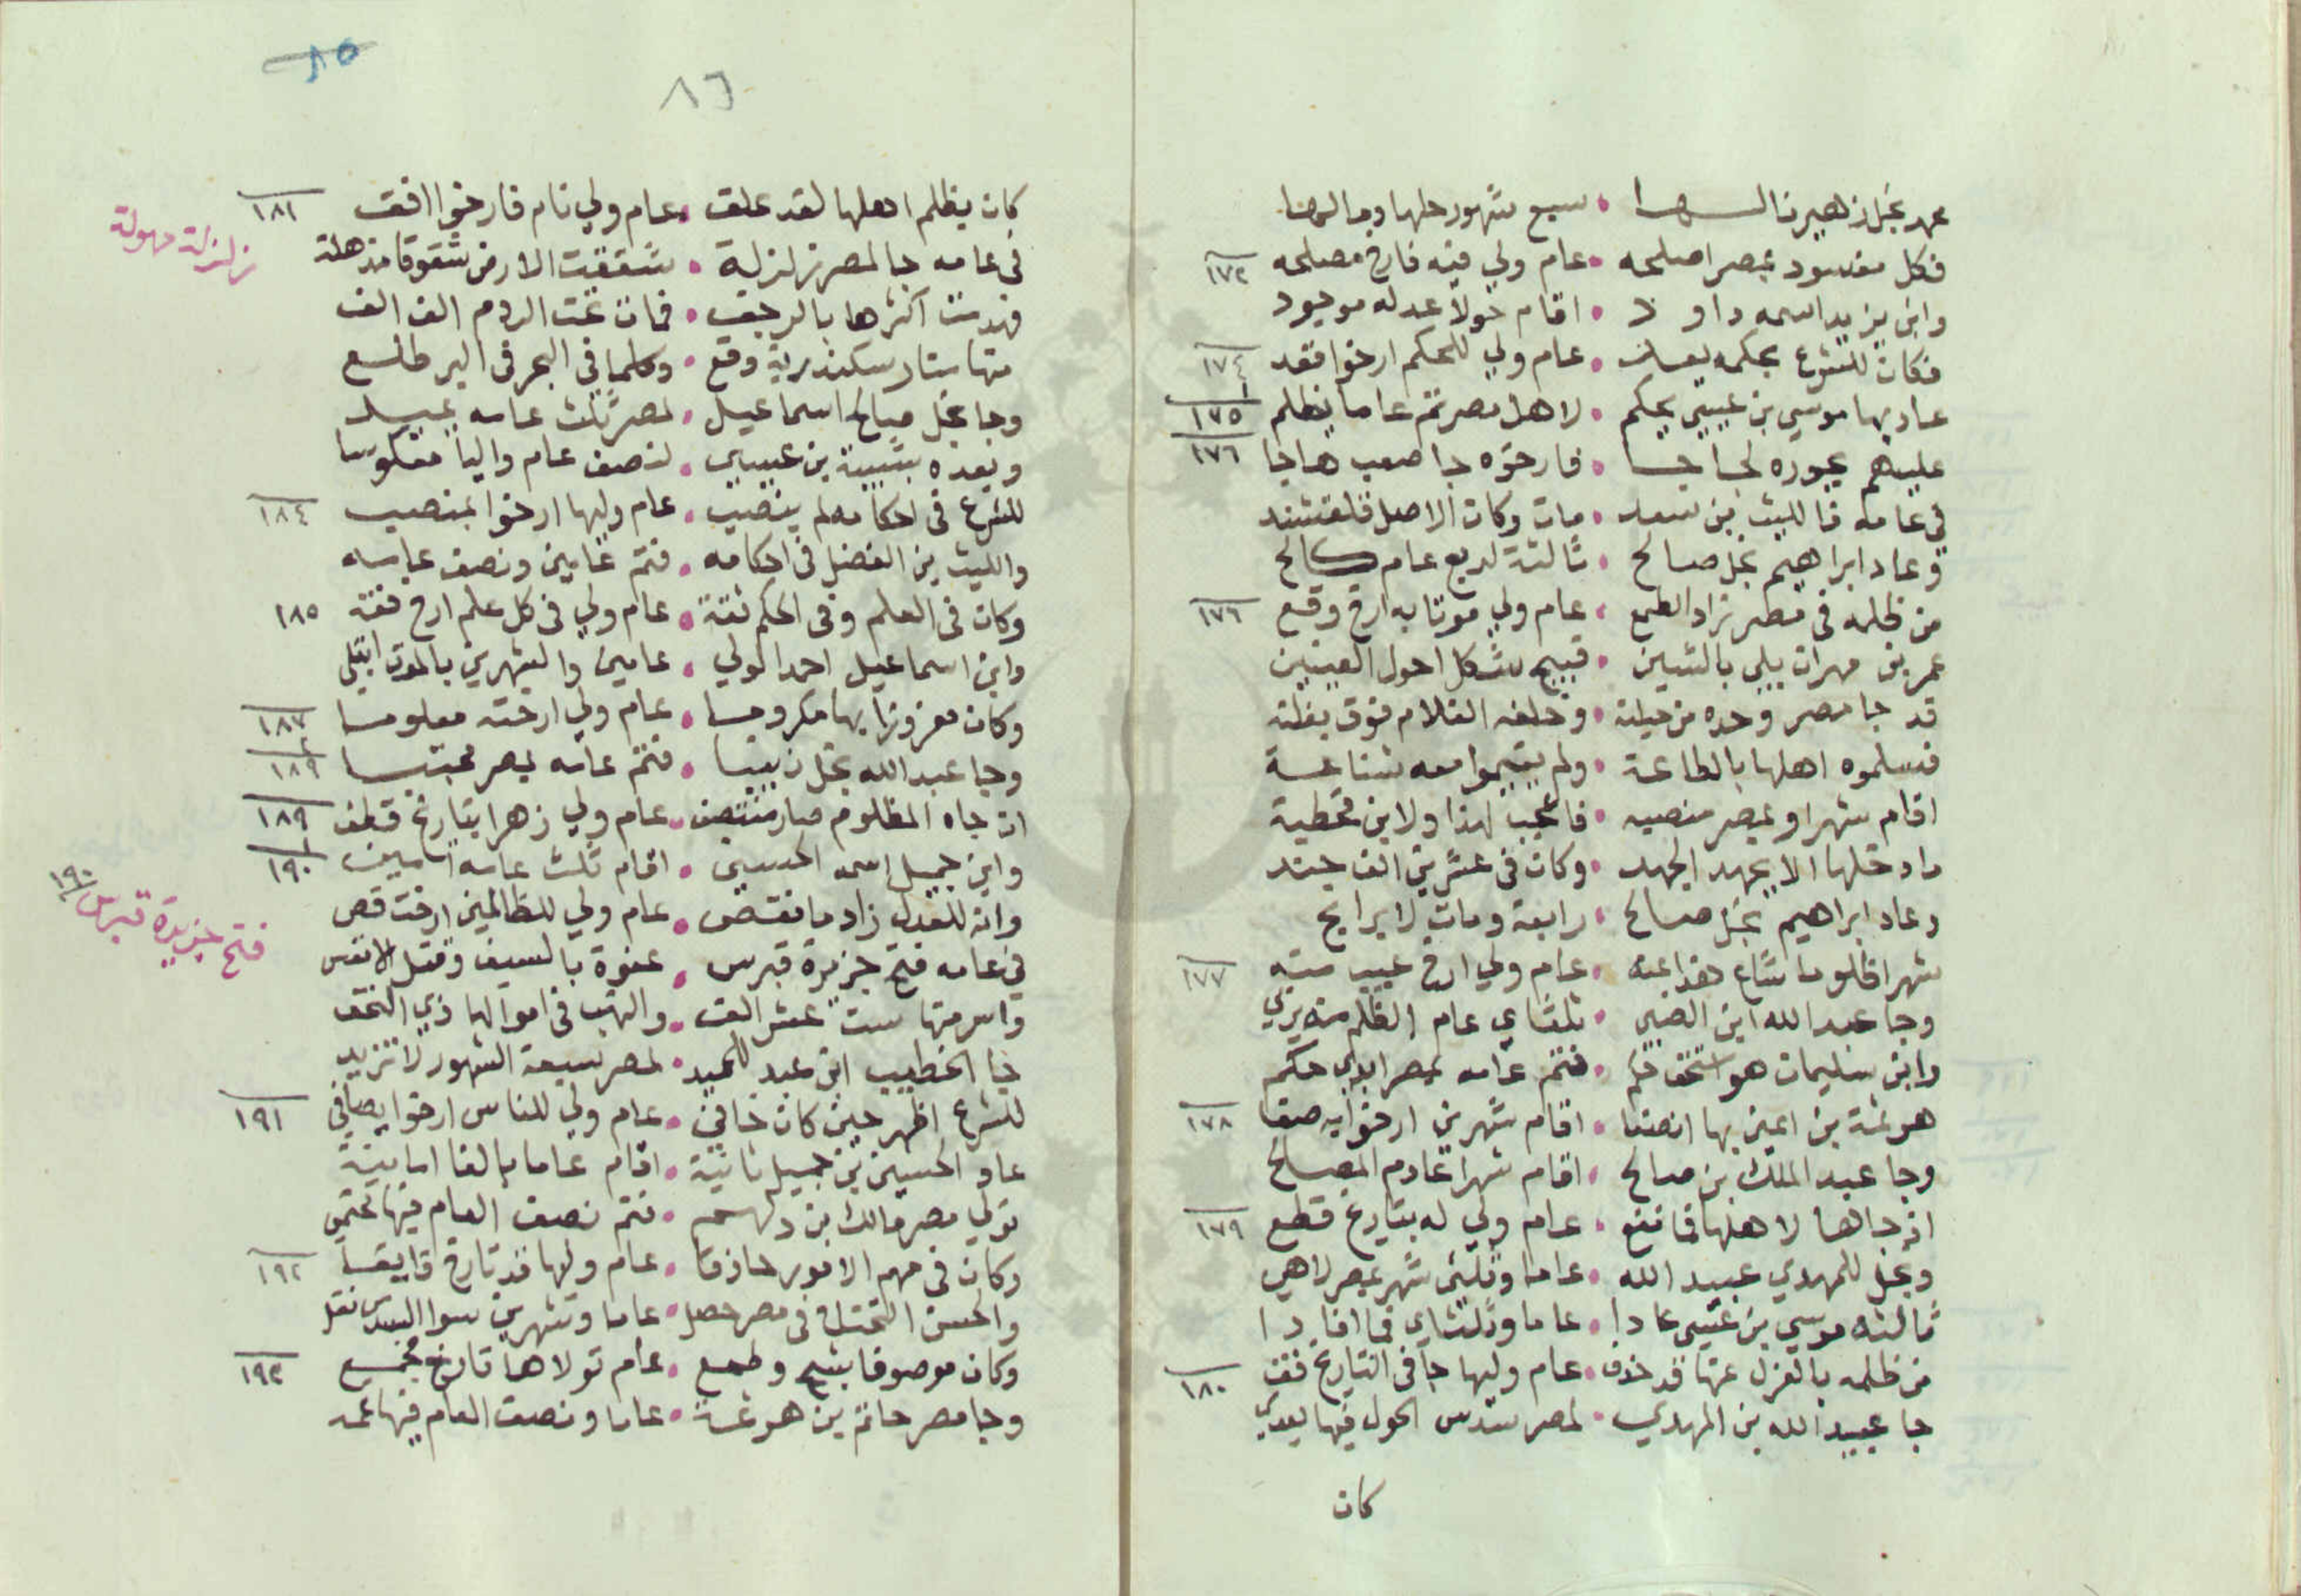 محمد نجل زهير نال • سبع شهور حلها وبها لهنا
فكل مفسود بمصر اصلحه • عام ولي فيه فارخ مصلحه ١٧٢
وابن يزيد اسمه داود • اقام حولا عدله موجود
فكان للشرع بحكمه • عام ولي للحكم ارخوا فقد ١٧٤
عاد بها موسي بن عيسي يحكم • لاهل مصر تم عاما يظلم ١٧٥
عليهم بجوره • فارخوه جا صعب هاجا ١٧٦
في عامه فالليث بن سعد • مات وكان الاصل
وعاد ابراهيم نجل صالح • ثالثة لربع عام كالح
من ظلمه في مصر زاد الطمع • عام ولي موتا به ارخ وقع ١٧٦
عمر بن مهران يلي بالشين • قبيح شكل احول العينين
قد جا مصر وحده من حيلته • وخلفه الغلام فوق بغلته
فسلموه اهلها بالطاعة • ولم يقيموا معه شناعة
اقام شهرا وبمصر منصبه • فاعجب لهذا ولابن قحطبة
ما دخلها الا بجهد الجهد • وكان في عشرين الف جند
وعاد ابراهيم نجل صالح • رابعة ومات لا برايح
شهرا فلوما شاع هذا عنه • عام ولي ارخ عيب منه ١٧٧
وجا عبد الله ابن الضبي • ثلثاي عام الظلم منه يربي
وابن سليمان هو اسحق • فتم عامه بمصر ابدي حكم
هرثمة بن اعين بها انصفا • اقام شهرين ارخوا به صفا ١٧٨
وجا عبد الملك بن صالح • اقام شهرا عادم المصالح
اذ جاها لاهلها فما نفع • عام ولي له بتاريخ قطع ١٧٩
ونجل للمهدي عبيد الله • عاما وثلثي شهر بمصر لاهي
ثالثه موسي بن عيسي عادا • عاما وثلثاي فما افادا
من ظلمه بالعزل عنها قد خذف • عام وليها جا في التاريخ فقف ١٨٠
جا عبيد الله بن المهدي • لمصر سدس الحول فيها يعدي
كان
٨٥
٨٦
كان يظلم اهلها لقد علق • عام ولي نام فارخوا افق ١٨١
في عامه جا لمصر زلزلة • شققت الارض شقوقا مذهلة
زلزلة مهولة
فهدمت اكثرها بالرجف • فمات تحت الردم الف الف
منها منار سكندرية وقع • وكلما في البحر في البر طلع
وجا نجل صالح اسماعيل • لمصر ثلث عامه يميل
وبعده بن عيسي • لنصف عام واليا معكوسا
للشرع في احكامه لم ينصب • عام وليها ارخوا بمنصب ١٨٤
والليث بن الفضل في احكامه • فتم عامين ونصف عامه
وكان في العلم وفي الحكم ثقة • عام ولي في كل علم ارخ فقه ١٨٥
وابن اسماعيل احمد الولي • عامين والشهرين بالموت ابتلي
وكان معزوزا بها مكروما • عام ولي ارخته معلوما ١٨٧
وجا عبد الله نجل زينبا • فتم عامه بمصر مجتبا ١٨٩
ان جاه المظلوم صار منتصف • عام ولي زهرا بتاريخ قطف ١٨٩
وابن جميل اسمه الحسين • اقام ثلث عامه امين ١٩٠
وانه للعدل زاد ما نقص • عام ولي للظالمين ارخت قص
في عامه فتح جزيرة قبرس • عنوة بالسيف وقتل الانفس
فتح جزيرة قبرس ١٩٠
واسر منها ست عشر الف • والنهب في اموالها ذي التحف
جا الخطيب ابن عبد الحميد • لمصر سبعة الشهور لا تزيد
للشرع اظهر حين كان خافي • عام ولي للناس ارخوا يصافي ١٩١
عاد الحسين بن جميل ثانية • اقام عاما بالغا امانية
تولي مصر مالك بن دلهم • فتم نصف العام فيها تحتمي
وكان في مهم الامور حاذقا • عام وليها قد تارخ فايقا ١٩٢
والحسن في مصر حصل • عاما وشهرين سوا السدس نقل
وكان موصوفا بشح وطمع • عام تولاها تارخ جمع ١٩٣
وجا مصر حاتم بن هرثمة • عاما ونصف العام فيها تمه